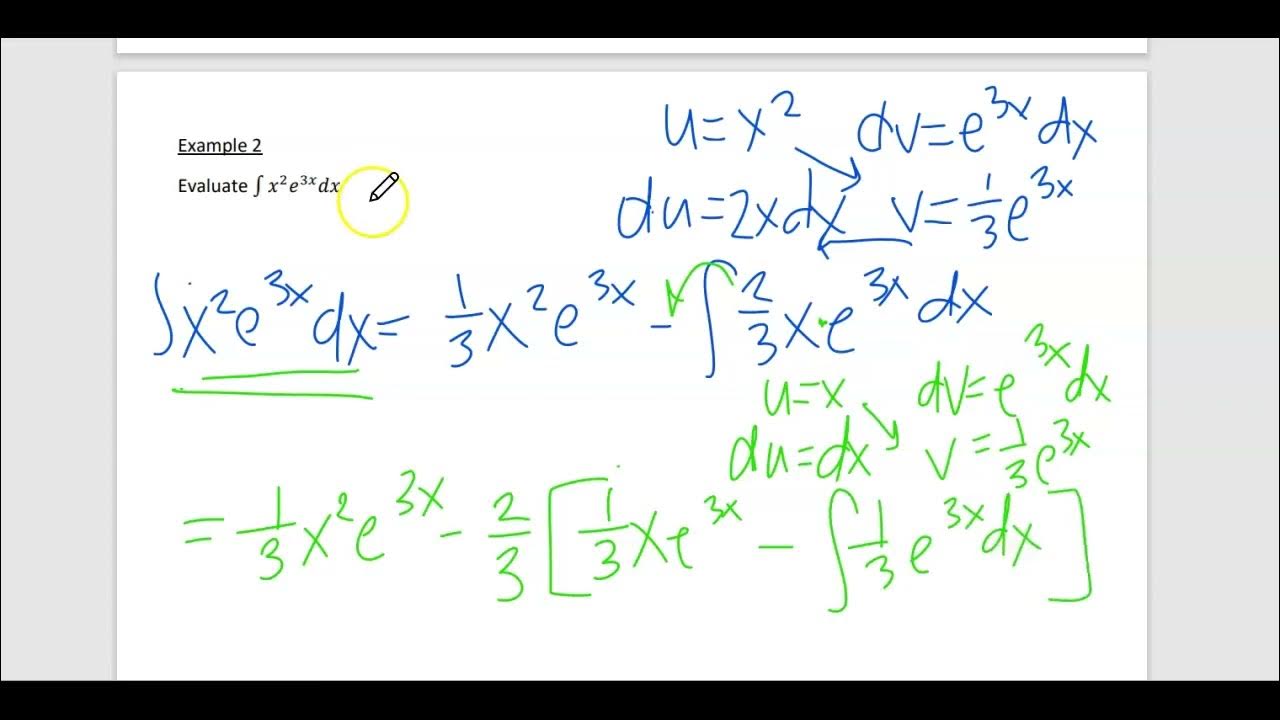 Example 2
Evaluate ∫ x²e³ˣdx
u=x² dv=e³ˣ dx
du=2xdx v=⅓e³ˣ
∫x²e³ˣ dx= ⅓x²e³ˣ - ∫⅔x·e³ˣ dx
u=x dv=e³ˣdx
du=dx v=⅓e³ˣ
= ⅓x²e³ˣ - ⅔[⅓xe³ˣ - ∫⅓e³ˣdx]